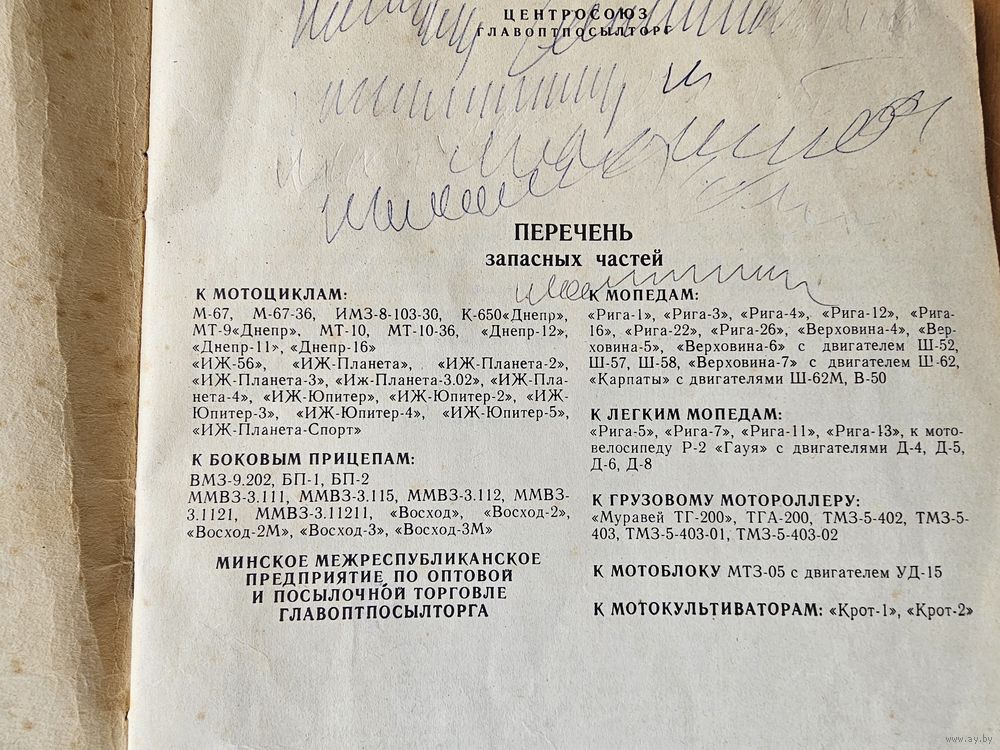 ЦЕНТРОСОЮЗ
ГЛАВОПТПОСЫЛТОРГ
ПЕРЕЧЕНЬ
запасных частей
К МОТОЦИКЛАМ:
М-67, М-67-36, ИМЗ-8-103-30, К-650«Днепр»,
МТ-9«Днепр», МТ-10, МТ-10-36, «Днепр-12»,
«Днепр-11», «Днепр-16»
«ИЖ-56», «ИЖ-Планета», «ИЖ-Планета-2»,
«ИЖ-Планета-3», «Иж-Планета-3.02», «ИЖ-Пла-
нета-4», «ИЖ-Юпитер», «ИЖ-Юпитер-2», «ИЖ-
Юпитер-3», «ИЖ-Юпитер-4», «ИЖ-Юпитер-5»,
«ИЖ-Планета-Спорт»
К БОКОВЫМ ПРИЦЕПАМ:
ВМЗ-9.202, БП-1, БП-2
ММВЗ-3.111, ММВЗ-3.115, ММВЗ-3.112, ММВЗ-
3.1121, ММВЗ-3.11211, «Восход», «Восход-2»,
«Восход-2М», «Восход-3», «Восход-3М»
МИНСКОЕ МЕЖРЕСПУБЛИКАНСКОЕ
ПРЕДПРИЯТИЕ ПО ОПТОВОЙ
И ПОСЫЛОЧНОЙ ТОРГОВЛЕ
ГЛАВОПТПОСЫЛТОРГА
К МОПЕДАМ:
«Рига-1», «Рига-3», «Рига-4», «Рига-12», «Рига-
16», «Рига-22», «Рига-26», «Верховина-4», «Вер-
ховина-5», «Верховина-6» с двигателем Ш-52,
Ш-57, Ш-58, «Верховина-7» с двигателем Ш-62,
«Карпаты» с двигателями Ш-62М, В-50
К ЛЕГКИМ МОПЕДАМ:
«Рига-5», «Рига-7», «Рига-11», «Рига-13», к мото-
велосипеду Р-2 «Гауя» с двигателями Д-4, Д-5,
Д-6, Д-8
К ГРУЗОВОМУ МОТОРОЛЛЕРУ:
«Муравей ТГ-200», ТГА-200, ТМЗ-5-402, ТМЗ-5-
403, ТМЗ-5-403-01, ТМЗ-5-403-02
К МОТОБЛОКУ МТЗ-05 с двигателем УД-15
К МОТОКУЛЬТИВАТОРАМ: «Крот-1», «Крот-2»
www.ay.by